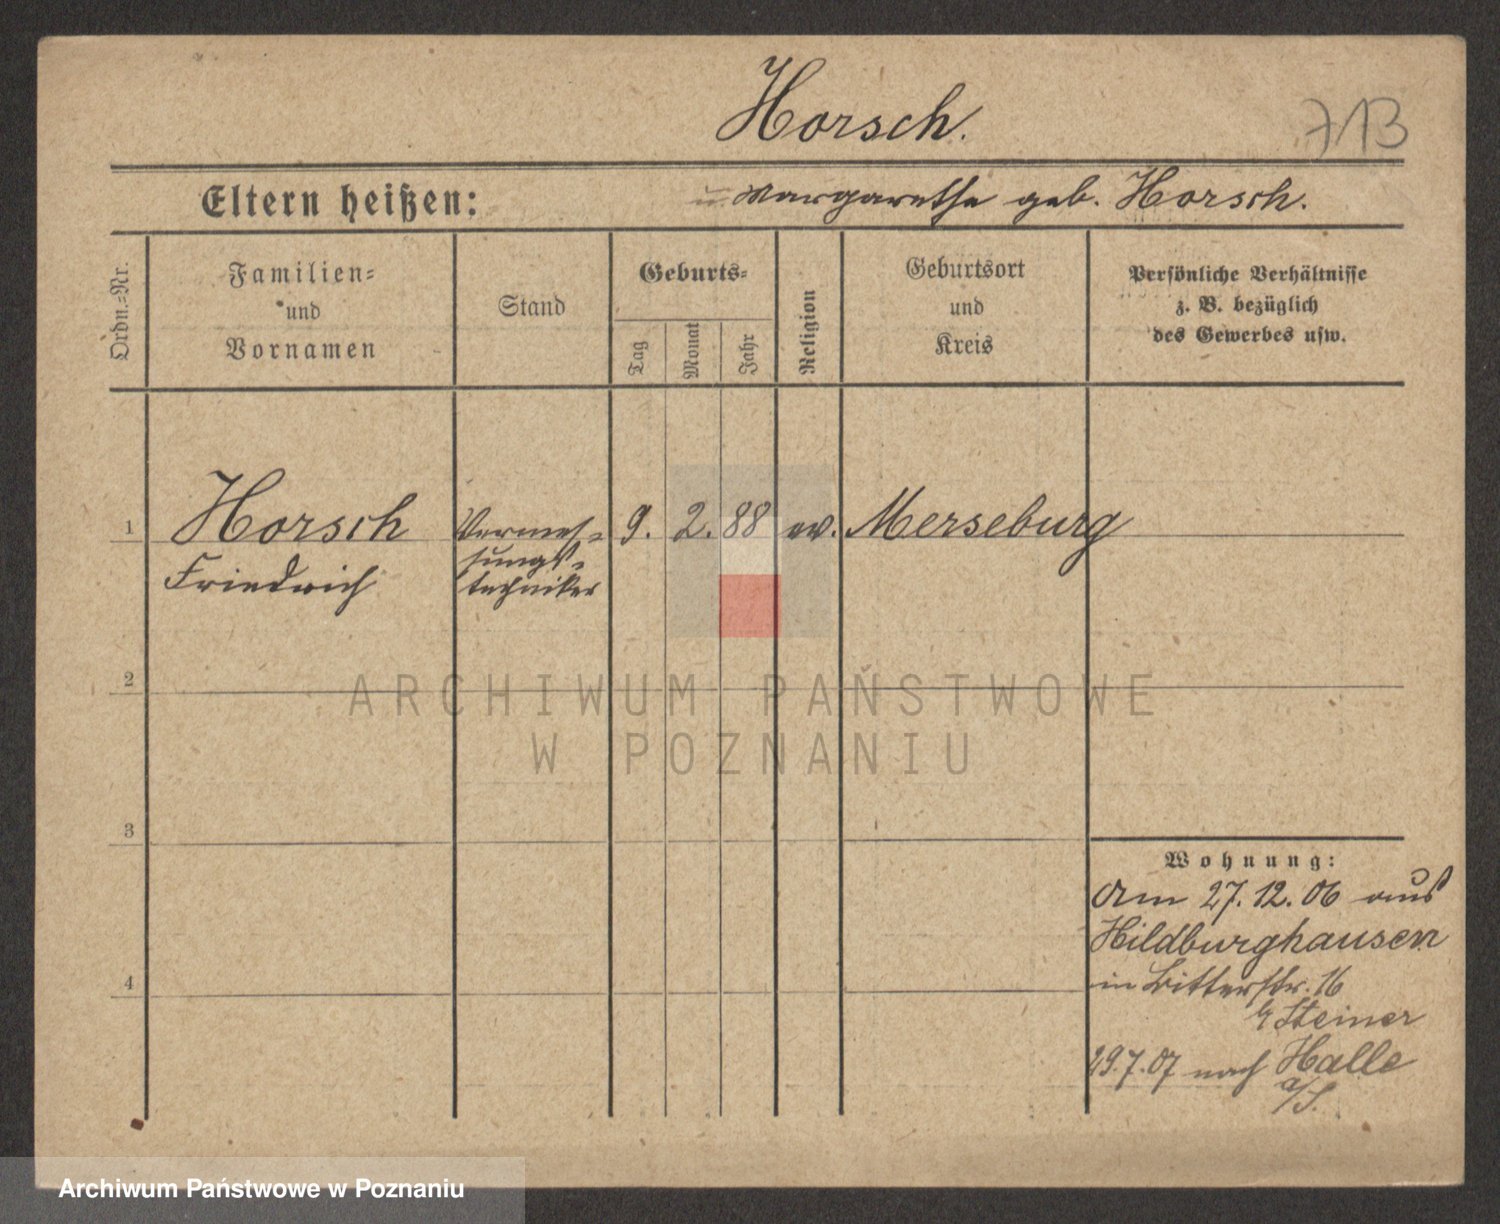 Horsch.
713
Eltern heißen: Margarethe geb. Horsch.
Ordn.=Nr.
Familien=
und
Vornamen
Stand
Geburts=
Tag
Monat
Jahr
Religion
Geburtsort
und
Kreis
Persönliche Verhältnisse
z. B. bezüglich
des Gewerbes usw.
1 Horsch Vermes- 9. 2. 88 ev. Merseburg
sungs-
Friedrich techniker
2
ARCHIWUM PAŃSTWOWE
W POZNANIU
3
Wohnung:
Am 27.12.06 aus
Hildburghausen
4
in Ritterstr. 16
b/ Steiner
29.7.07 nach Halle
a/S.
Archiwum Państwowe w Poznaniu